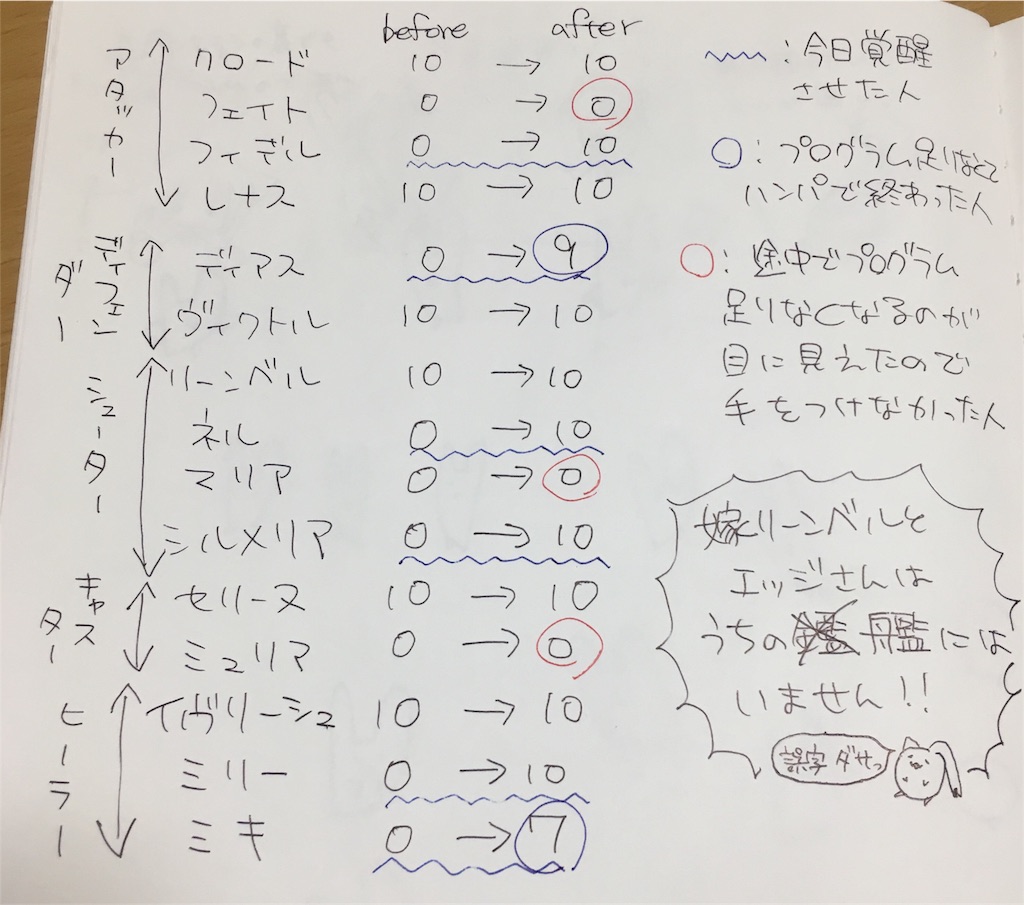 before after
アタッカー
クロード 10 → 10
フェイト 0 → 0
フィデル 0 → 10
レナス 10 → 10
ディフェンダー
ディアス 0 → 9
ヴィクトル 10 → 10
シューター
リーンベル 10 → 10
ネル 0 → 10
マリア 0 → 0
シルメリア 0 → 10
キャスター
セリーヌ 10 → 10
ミュリア 0 → 0
ヒーラー
イヴリーシュ 10 → 10
ミリー 0 → 10
ミキ 0 → 7
:今日覚醒
させた人
:プログラム足りなくて
ハンパで終わった人
:途中でプログラム
足りなくなるのが
目に見えたので
手をつけなかった人
嫁リーンベルと
エッジさんは
うちの 艦には
いません!!
誤字ダサっ